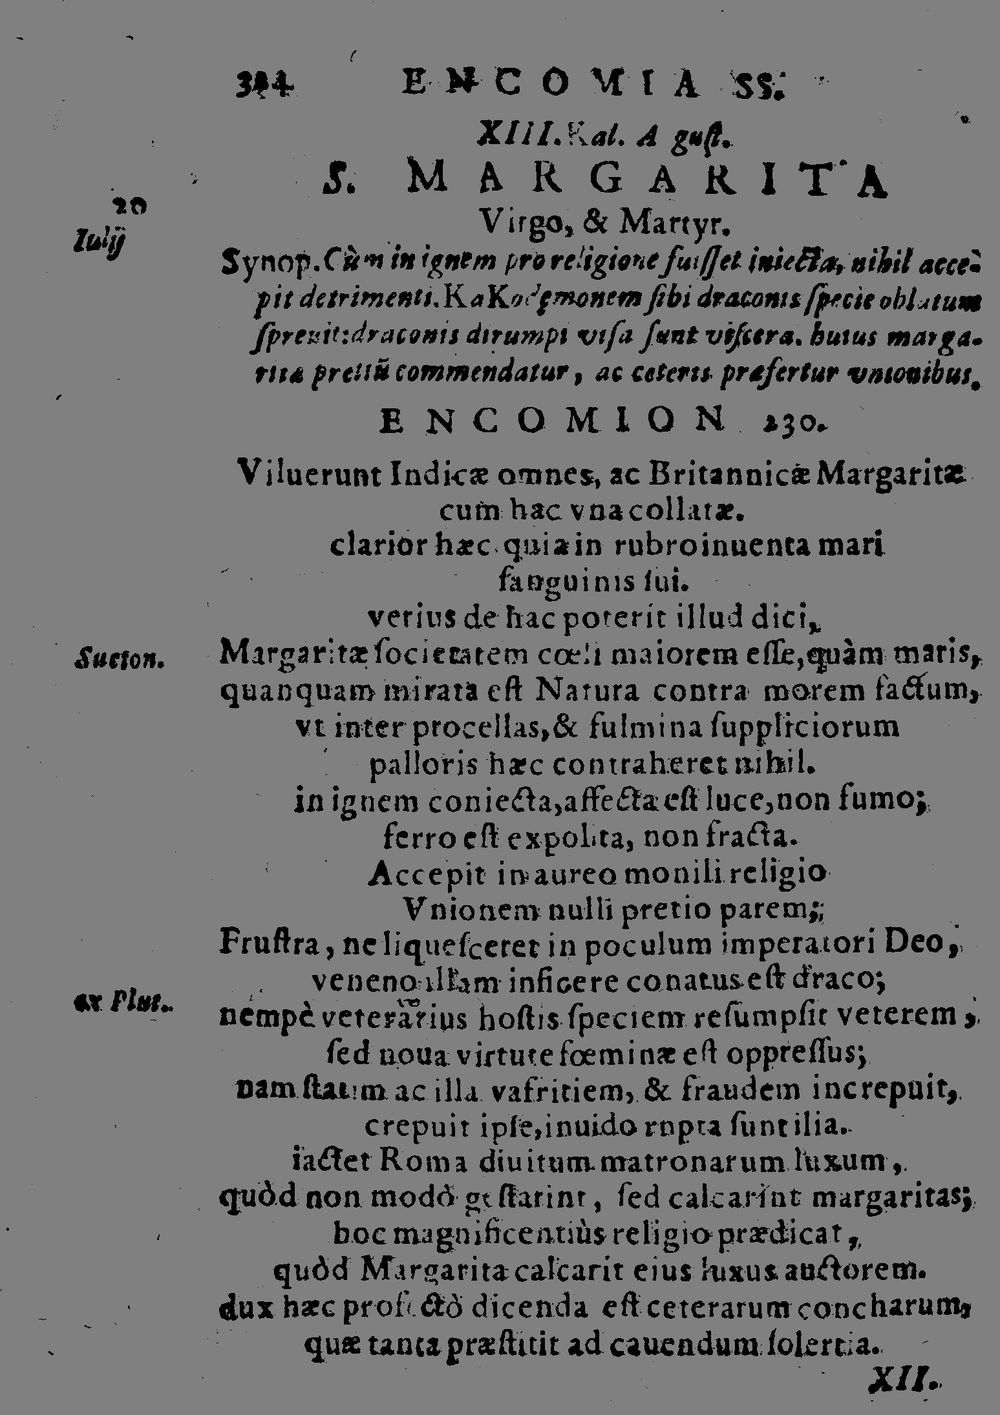 344 ENCOMIA SS.
XIII. Kal. Aguſt.
S. MARGARITA
20
Iulij
Virgo, & Martyr.
Synop. Cùm in ignem pro religione fuiſſet iniecta, nihil acce-
pit detrimenti. KaKodęmonem ſibi draconis ſpecie oblatum
ſpreuit: draconis dirumpi viſa ſunt viſcera. huius marga-
ritæ pretiũ commendatur, ac ceteris præfertur vnionibus.
ENCOMION 230.
Viluerunt Indicæ omnes, ac Britannicæ Margaritæ
cum hac vna collatæ.
clarior hæc quia in rubro inuenta mari
ſanguinis ſui.
verius de hac poterit illud dici,
Sueton.
Margaritæ ſocietatem cœli maiorem eſſe, quàm maris,
quanquam mirata eſt Natura contra morem factum,
vt inter procellas, & fulmina ſuppliciorum
palloris hæc contraheret nihil.
in ignem coniecta, affecta eſt luce, non fumo;
ferro eſt expolita, non fracta.
Accepit in aureo monili religio
Vnionem nulli pretio parem;
Fruſtra, ne liqueſceret in poculum imperatori Deo,
veneno illam inficere conatus eſt draco;
ex Plut.
nempè veterarius hoſtis ſpeciem reſumpſit veterem,
ſed noua virtute fœminæ eſt oppreſſus;
nam ſtatim ac illa vafritiem, & fraudem increpuit,
crepuit ipſe, inuido rupta ſunt ilia.
iactet Roma diuitum matronarum luxum,
quòd non modò geſtarint, ſed calcarint margaritas;
hoc magnificentiùs religio prædicat,
quòd Margarita calcarit eius luxus auctorem.
dux hæc profectò dicenda eſt ceterarum concharum,
quæ tanta præſtitit ad cauendum ſolertia.
XII.